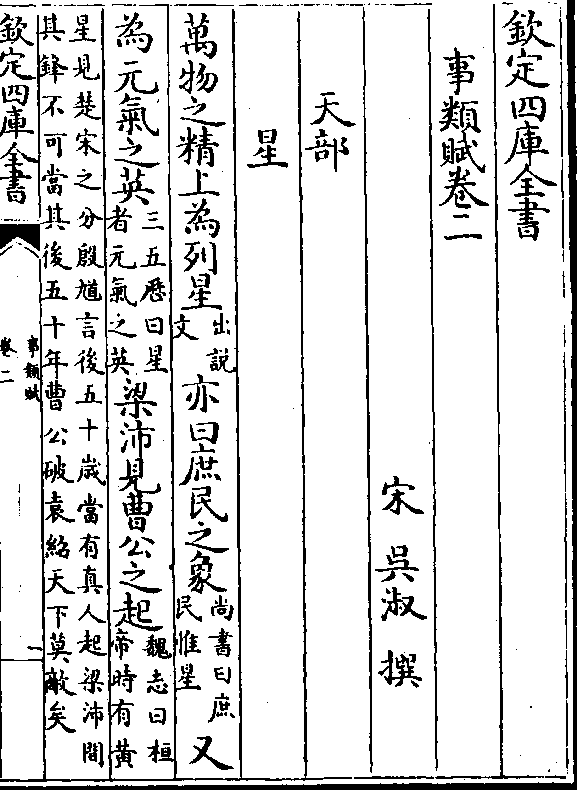 欽定四庫全書
事類賦卷二
宋 吳淑 撰
天部
星
萬物之精上為列星出説文亦曰庶民之象尚書曰庶民惟星又
為元氣之英三五厯曰星者元氣之英梁沛見曹公之起魏志曰桓帝時有黄
星見楚宋之分殷馗言後五十嵗當有真人起梁沛間
其鋒不可當其後五十年曹公破袁紹天下莫敵矣
欽定四庫全書
事類賦
卷二
一